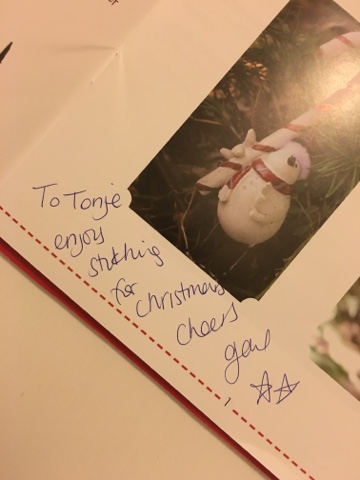 To Tonje
enjoy
stitching
for Christmas
cheers